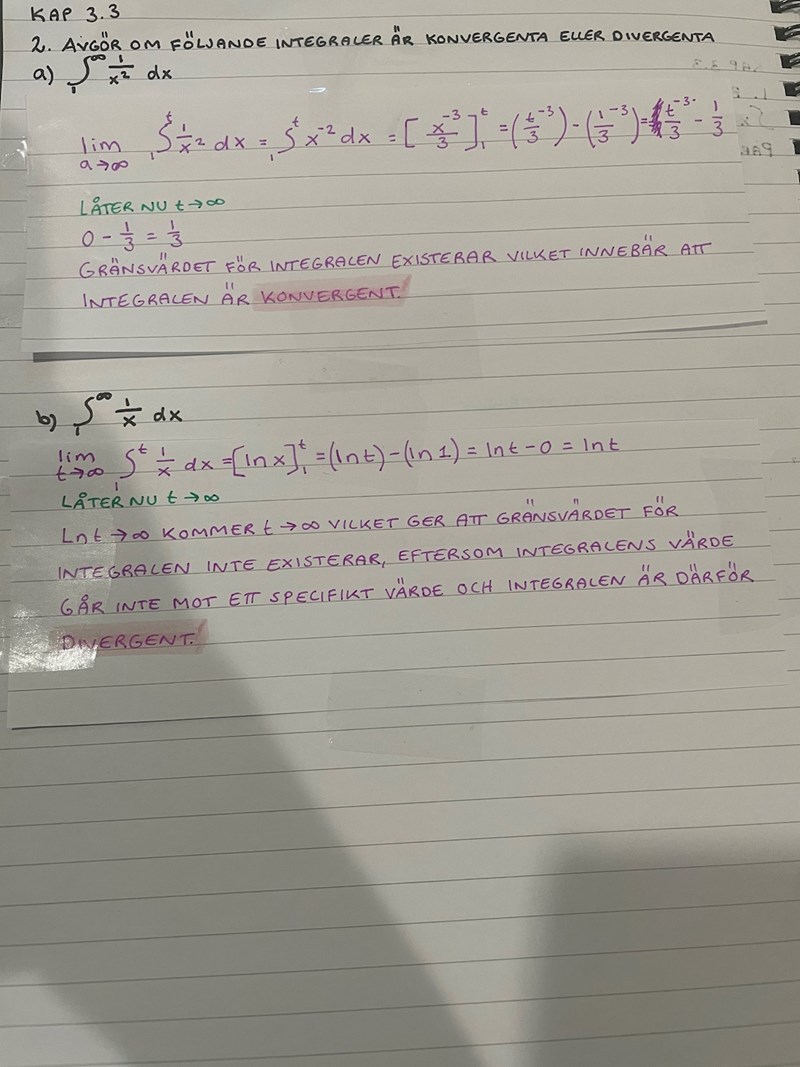 KAP 3.3
2. AVGÖR OM FÖLJANDE INTEGRALER ÄR KONVERGENTA ELLER DIVERGENTA
a) ∫₁^∞ 1/x² dx
lim a→∞ ₁∫^t 1/x² dx = ₁∫^t x⁻² dx = [x⁻³/3]₁^t = (t⁻³/3) - (1⁻³/3) = t⁻³/3 - 1/3
LÅTER NU t→∞
0 - 1/3 = 1/3
GRÄNSVÄRDET FÖR INTEGRALEN EXISTERAR VILKET INNEBÄR ATT
INTEGRALEN ÄR KONVERGENT.
b) ∫₁^∞ 1/x dx
lim t→∞ ∫₁^t 1/x dx = [ln x]₁^t = (ln t) - (ln 1) = ln t - 0 = ln t
LÅTER NU t→∞
Ln t → ∞ KOMMER t→∞ VILKET GER ATT GRÄNSVÄRDET FÖR
INTEGRALEN INTE EXISTERAR, EFTERSOM INTEGRALENS VÄRDE
GÅR INTE MOT ETT SPECIFIKT VÄRDE OCH INTEGRALEN ÄR DÄRFÖR
DIVERGENT.